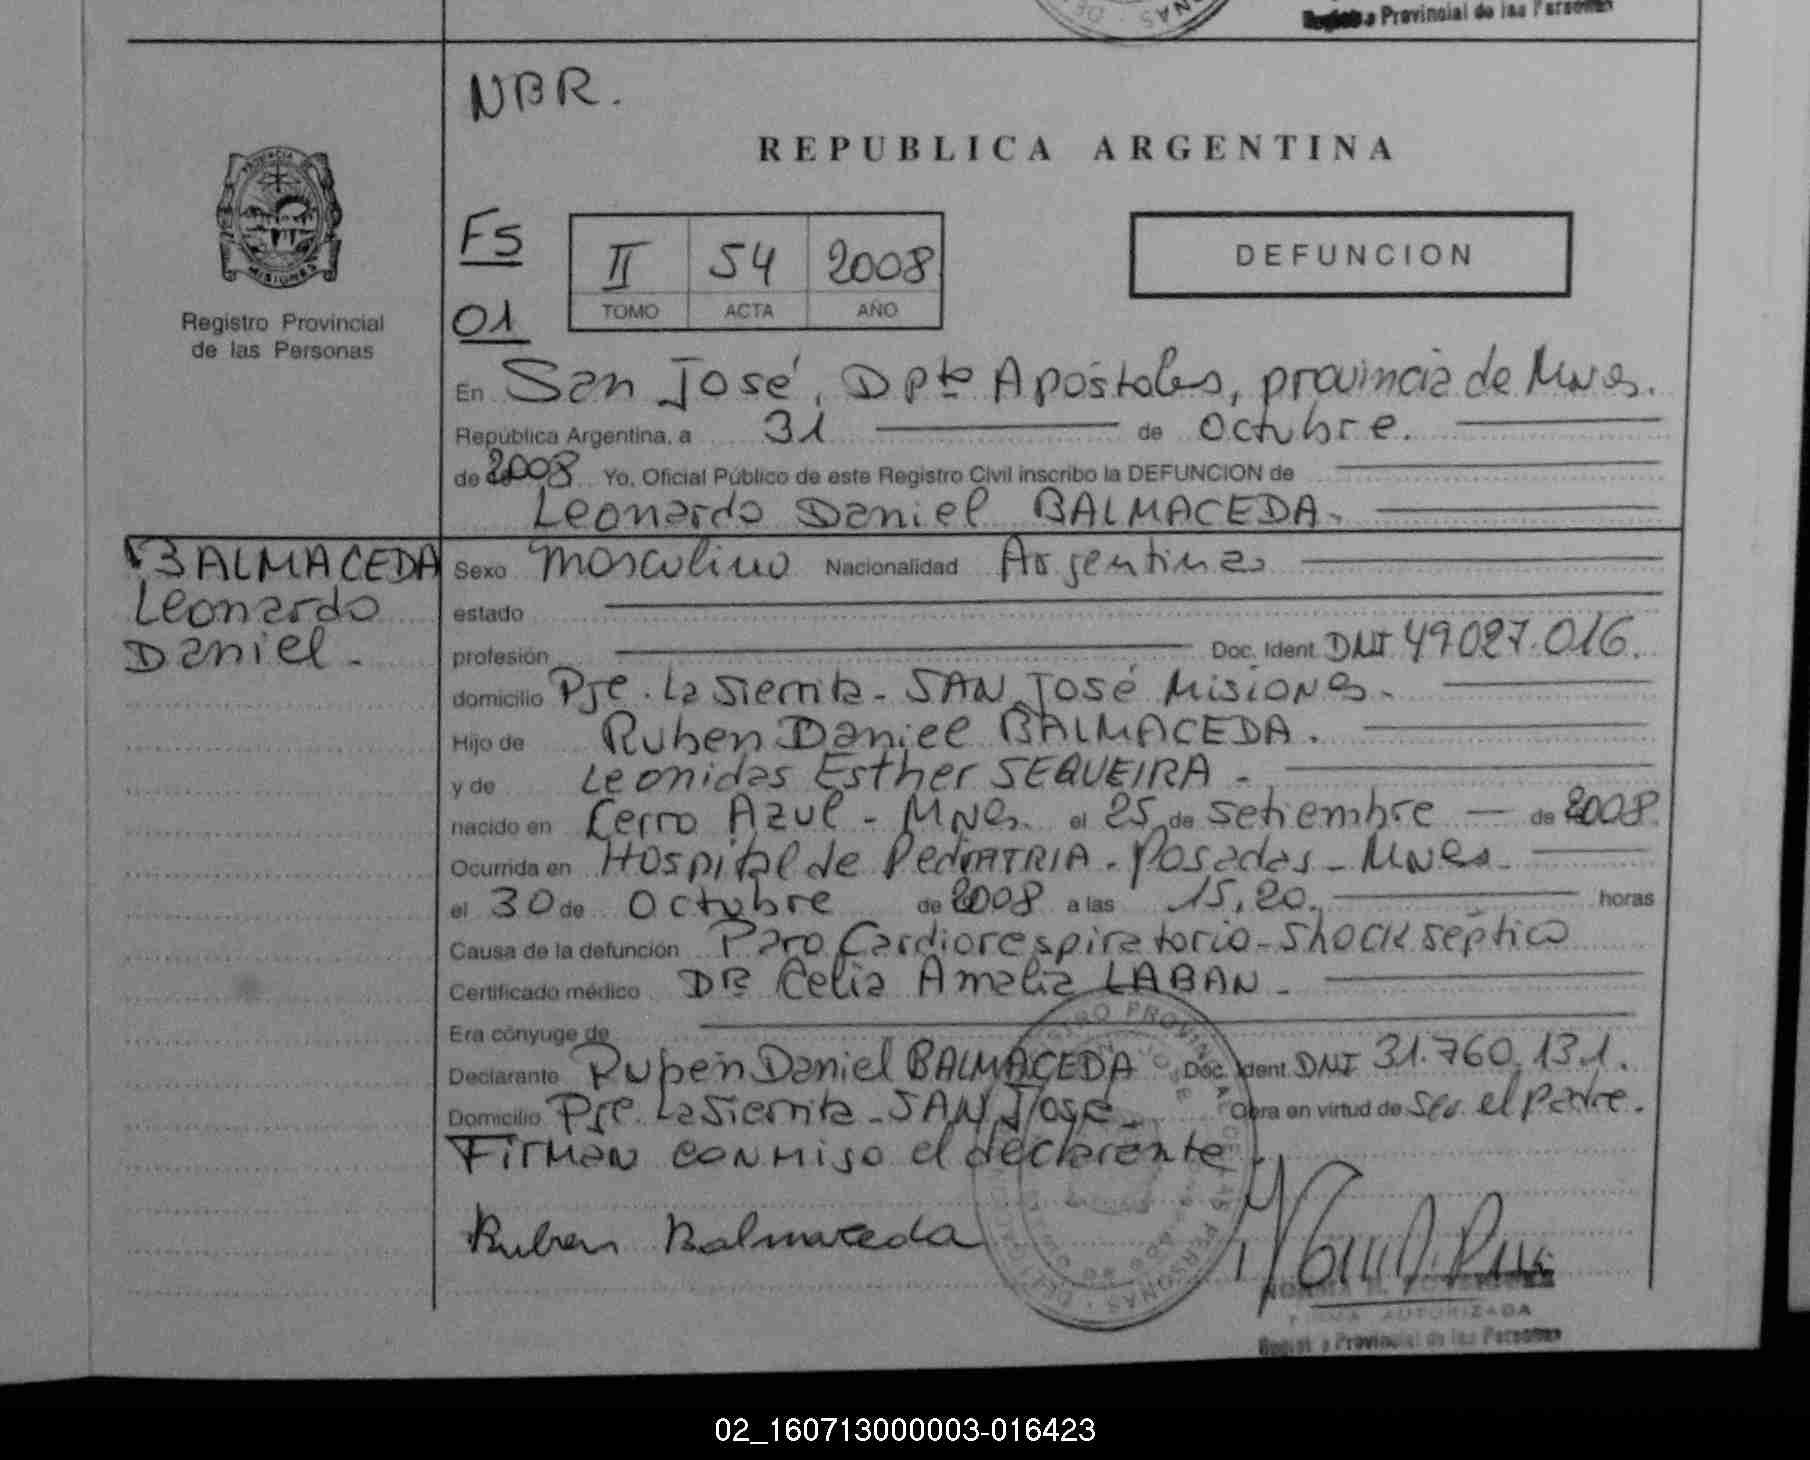 Provincial de las Personas
NBR.
REPUBLICA ARGENTINA
PROVINCIA
MISIONES
Registro Provincial
de las Personas
FS
01
II 54 2008
TOMO ACTA AÑO
DEFUNCION
En San José, Dpto Apóstoles, provincia de Mnes.
República Argentina, a 31 de Octubre.
de 2008 Yo, Oficial Público de este Registro Civil inscribo la DEFUNCION de
Leonardo Daniel BALMACEDA.
BALMACEDA
Leonardo
Daniel.
Sexo Masculino Nacionalidad Argentina
estado
profesión Doc. Ident DNI 49.027.016.
domicilio Pje. La Sierrita - SAN José Misiones.
Hijo de Ruben Daniel BALMACEDA.
y de Leonidas Esther SEQUEIRA.
nacido en Cerro Azul - Mnes. el 25 de setiembre de 2008.
Ocurrida en Hospital de PediATRIA - Posadas - Mnes.
el 30 de Octubre de 2008 a las 15,20. horas
Causa de la defunción Paro Cardiorespiratorio - Shock séptico
Certificado médico Dra Celia Amalia LABAN.
Era cónyuge de
Declarante Ruben Daniel BALMACEDA Doc. Ident DNI 31.760.131.
Domicilio Pje. La Sierrita - SAN José. Obra en virtud de ser el padre.
Firman conmigo el declarante.
Ruben Balmaceda
AUTORIZADA
Provincial de las Personas
02_160713000003-016423